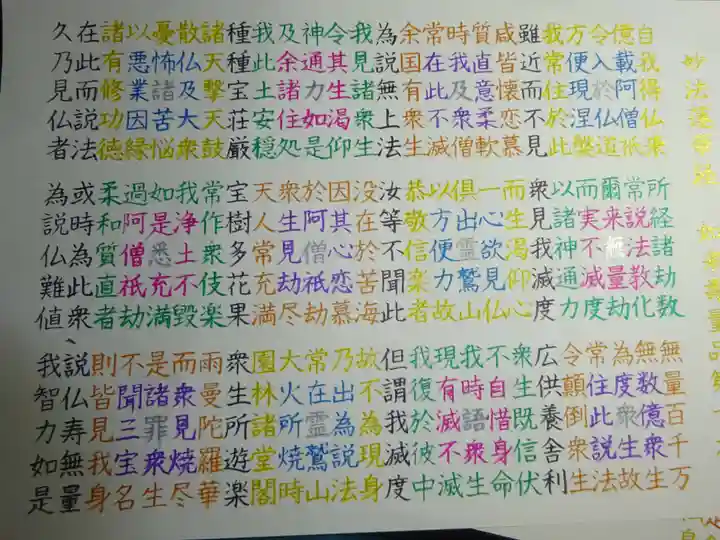 妙法蓮華経 如来寿量品第十
自我得仏来 所経諸劫数 無量百千万
億載阿僧祇 常説法教化 無数億衆生
令入於仏道 爾来無量劫 為度衆生故
方便現涅槃 而実不滅度 常住此説法
我常住於此 以諸神通力 令顛倒衆生
雖近而不見 衆見我滅度 広供養舎利
咸皆懐恋慕 而生渇仰心 衆生既信伏
質直意柔軟 一心欲見仏 不自惜身命
時我及衆僧 倶出霊鷲山 我時語衆生
常在此不滅 以方便力故 現有滅不滅
余国有衆生 恭敬信楽者 我復於彼中
為説無上法 汝等不聞此 但謂我滅度
我見諸衆生 没在於苦海 故不為現身
令其生渇仰 因其心恋慕 乃出為説法
神通力如是 於阿僧祇劫 常在霊鷲山
及余諸住処 衆生見劫尽 大火所焼時
我此土安穏 天人常充満 園林諸堂閣
種種宝荘厳 宝樹多花果 衆生所遊楽
諸天撃天鼓 常作衆伎楽 雨曼陀羅華
散仏及大衆 我浄土不毀 而衆見焼尽
憂怖諸苦悩 如是悉充満 是諸罪衆生
以悪業因縁 過阿僧祇劫 不聞三宝名
諸有修功徳 柔和質直者 則皆見我身
在此而説法 或時為此衆 説仏寿無量
久乃見仏者 為説仏難値 我智力如是